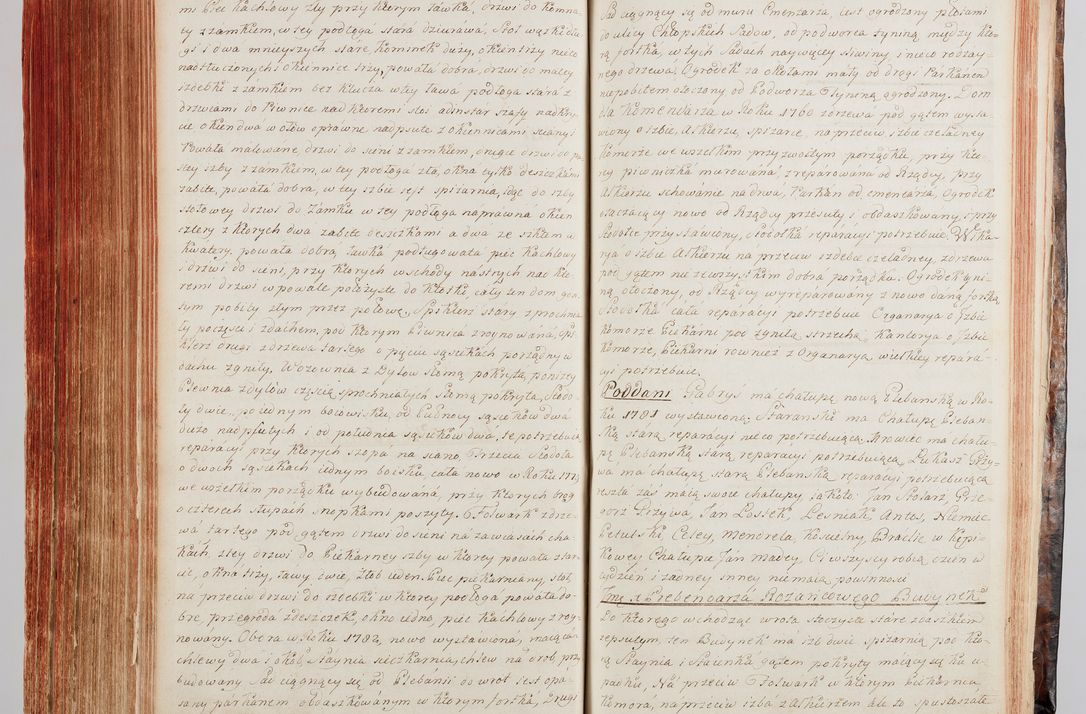 mi Piec kachlowy zły przy ktorym ławka, drzwi do komna
ty z zamkiem, w tey podłoga stará dziurawá, Stoł wązki dłu
gi i dwa mnieyszych stare kominek duży, okien trzy nieco
nadtłuczonych i okiennice trzy, powała dobrá, drzwi do małey
izdebki z zamkiem bez klucza w tey ława podłoga stará z
drzwiami do Piwnice nad ktoremi stoi adinstar szafy nadkry
cie okien dwá w ołów oprawne nadpsute z okiennicami, sciány i
Powała malowane, drzwi do sieni z zamkiem, drugie drzwi do pu
stey izby z zamkiem, w tey podłoga zła, okna tylko deszczkámi
zabite, powałá dobra, w tey izbie jest spiżarnia, idąc do izby
stołowey drzwi do Zamku w tey podłoga náprawná okien
cztery z ktorych dwa zabite deszczkami a dwa ze szkłem u
kwátery, powała dobrá, ławka podługowátá piec kachlowy
i drzwi do sieni, przy ktorych wschody na strych nad kto
remi drzwi w powale położyste do kletki, cáły ten dom gon
tem pobity złym przez połowę, Spiklerz stary z prochnia
ły poczęści i z dachem, pod ktorym Piwnica zrujnowáná, Spi
klerz drugi z drzewa tartego o pięciu sąsiekach porządny w
dachu zgniły, Wozownia z Dylow słomą pokrytá, poniżey
Plewnia z dylow częscią sprochniałych słomą pokrytá, Stodo
ły dwie po jednym boiowisku, od Pułnocy sąsieków dwá
dużo nadpsutych i od południa sąsiekow dwá, te potrzebuią
reparácyi przy ktorych szopa na siano. Trzecia Stodoła
o dwoch sąsiekach iednym boisku, cała nowo w Roku 1773
we wszelkim porządku wybudowána, przy ktorych brog
o czterech słupach snopkami poszyty. Folwark z drze
wá tartego pod gątem drzwi do sieni na zawiasách cha
kách, z tey drzwi do Piekarney izby w ktorey powała z tar
cic, okna trzy, ławy dwie, żłob ieden Piec piekarniány, stoł,
na przeciw drzwi do izdebki w ktorey podłoga powała do
bre, przegroda z deszczek, okno iedno, piec kachlowy zruy
nowany. Obora w Roku 1782, nowo wystawiona, maiąca
chlewy dwá i okoł, Staynia sieczkarnia, chlew na drob, przy
budowany Sad ciągnący się od Plebanii do wrot jest opa
sany párkanem obdaszkowánym w ktorym fortká, Drugi
Sad ciągnący się od muru Cmentarza, iest ogrodzony płotami
do ulicy Chłopskich Sadow, od podworca tyniną między kto
rą fortká, w tych Sadach naywięcey sliwiny, i nieco rodzay
nego drzewá. Ogrodek za okołami máły od drogi Parkanem
niepobitem otoczony od Podworza Tyniną ogrodzony. Dom
dla Komendarza w Roku 1760 z drzewa pod gątem wysta
wiony o Izbie, Alkierzu, spizarni, na przeciw izbie czeladney
Komorze we wszelkim przyzwoitym porządku, przy kto
ry piwniczka murowána, zreparowána od Rządcy, przy
Alkierzu schowánie na drwa. Parkan od cmentarza, Ogrodek
otaczáiący nowo od Rządcy przesuty i obdaszkowány i przy
Stodołce przystawiony, Stodołka repáracyi potrzebuie. Wika
rya o Izbie Alkierzu na przeciw izdebce czeladney, z drzewa
pod gątem nie zewszystkim dobrá porządku. Ogrodek tyni
ną otoczony, od Rządcy wyreparowány z nowo daną fortką
Stodołka cała reparacyi potrzebuie Organarya o Izbie
Komorze Piekarni pod zgniłą strzechą. Kantorya o Izbie
Komorze, Piekarni rownież z Organaryą wielkiey repara-
cyi potrzebuie.
Poddani Gabryś ma chałupę nową Plebanską w Ro
ku 1781 wystawioną. Staranski ma Chałupę Pleban
ską stárą reparácyi nieco potrzebuiącą. Mrowiec ma chału
pę Plebanską stárą reparácyi potrzebuiącą. Łukasz Przy
wa má chałupę starą Plebanską reparácyi potrzebuiącą
reszta záś maią swoie chałupy, jako to: Jan Stolarz, Grze
gorz Przywa, Jan Lossek, Lesniak, Antos, Niemiec
Petulski, Celey, Mendrela, Koscielny, Bradlic w Kępi
kowey Chałupie Jan Madey, Ci wszyscy robią dzien w
tydzień i żadney inney nie maią powinnosci
Imę X Prebendarzá Rożańcowego Budynek
Do ktorego wchodząc wrota stoczyste stáre z dászkiem
zepsutym, ten Budynek ma izb dwie spiżarnią pod kto
rą Staynia i stavenka gątem pokryty máiący się ku u
padku, Na przeciw Folwark w ktorym Piekarnia
Komora, na przeciw izba z Alkierzem ale to spustoszałe